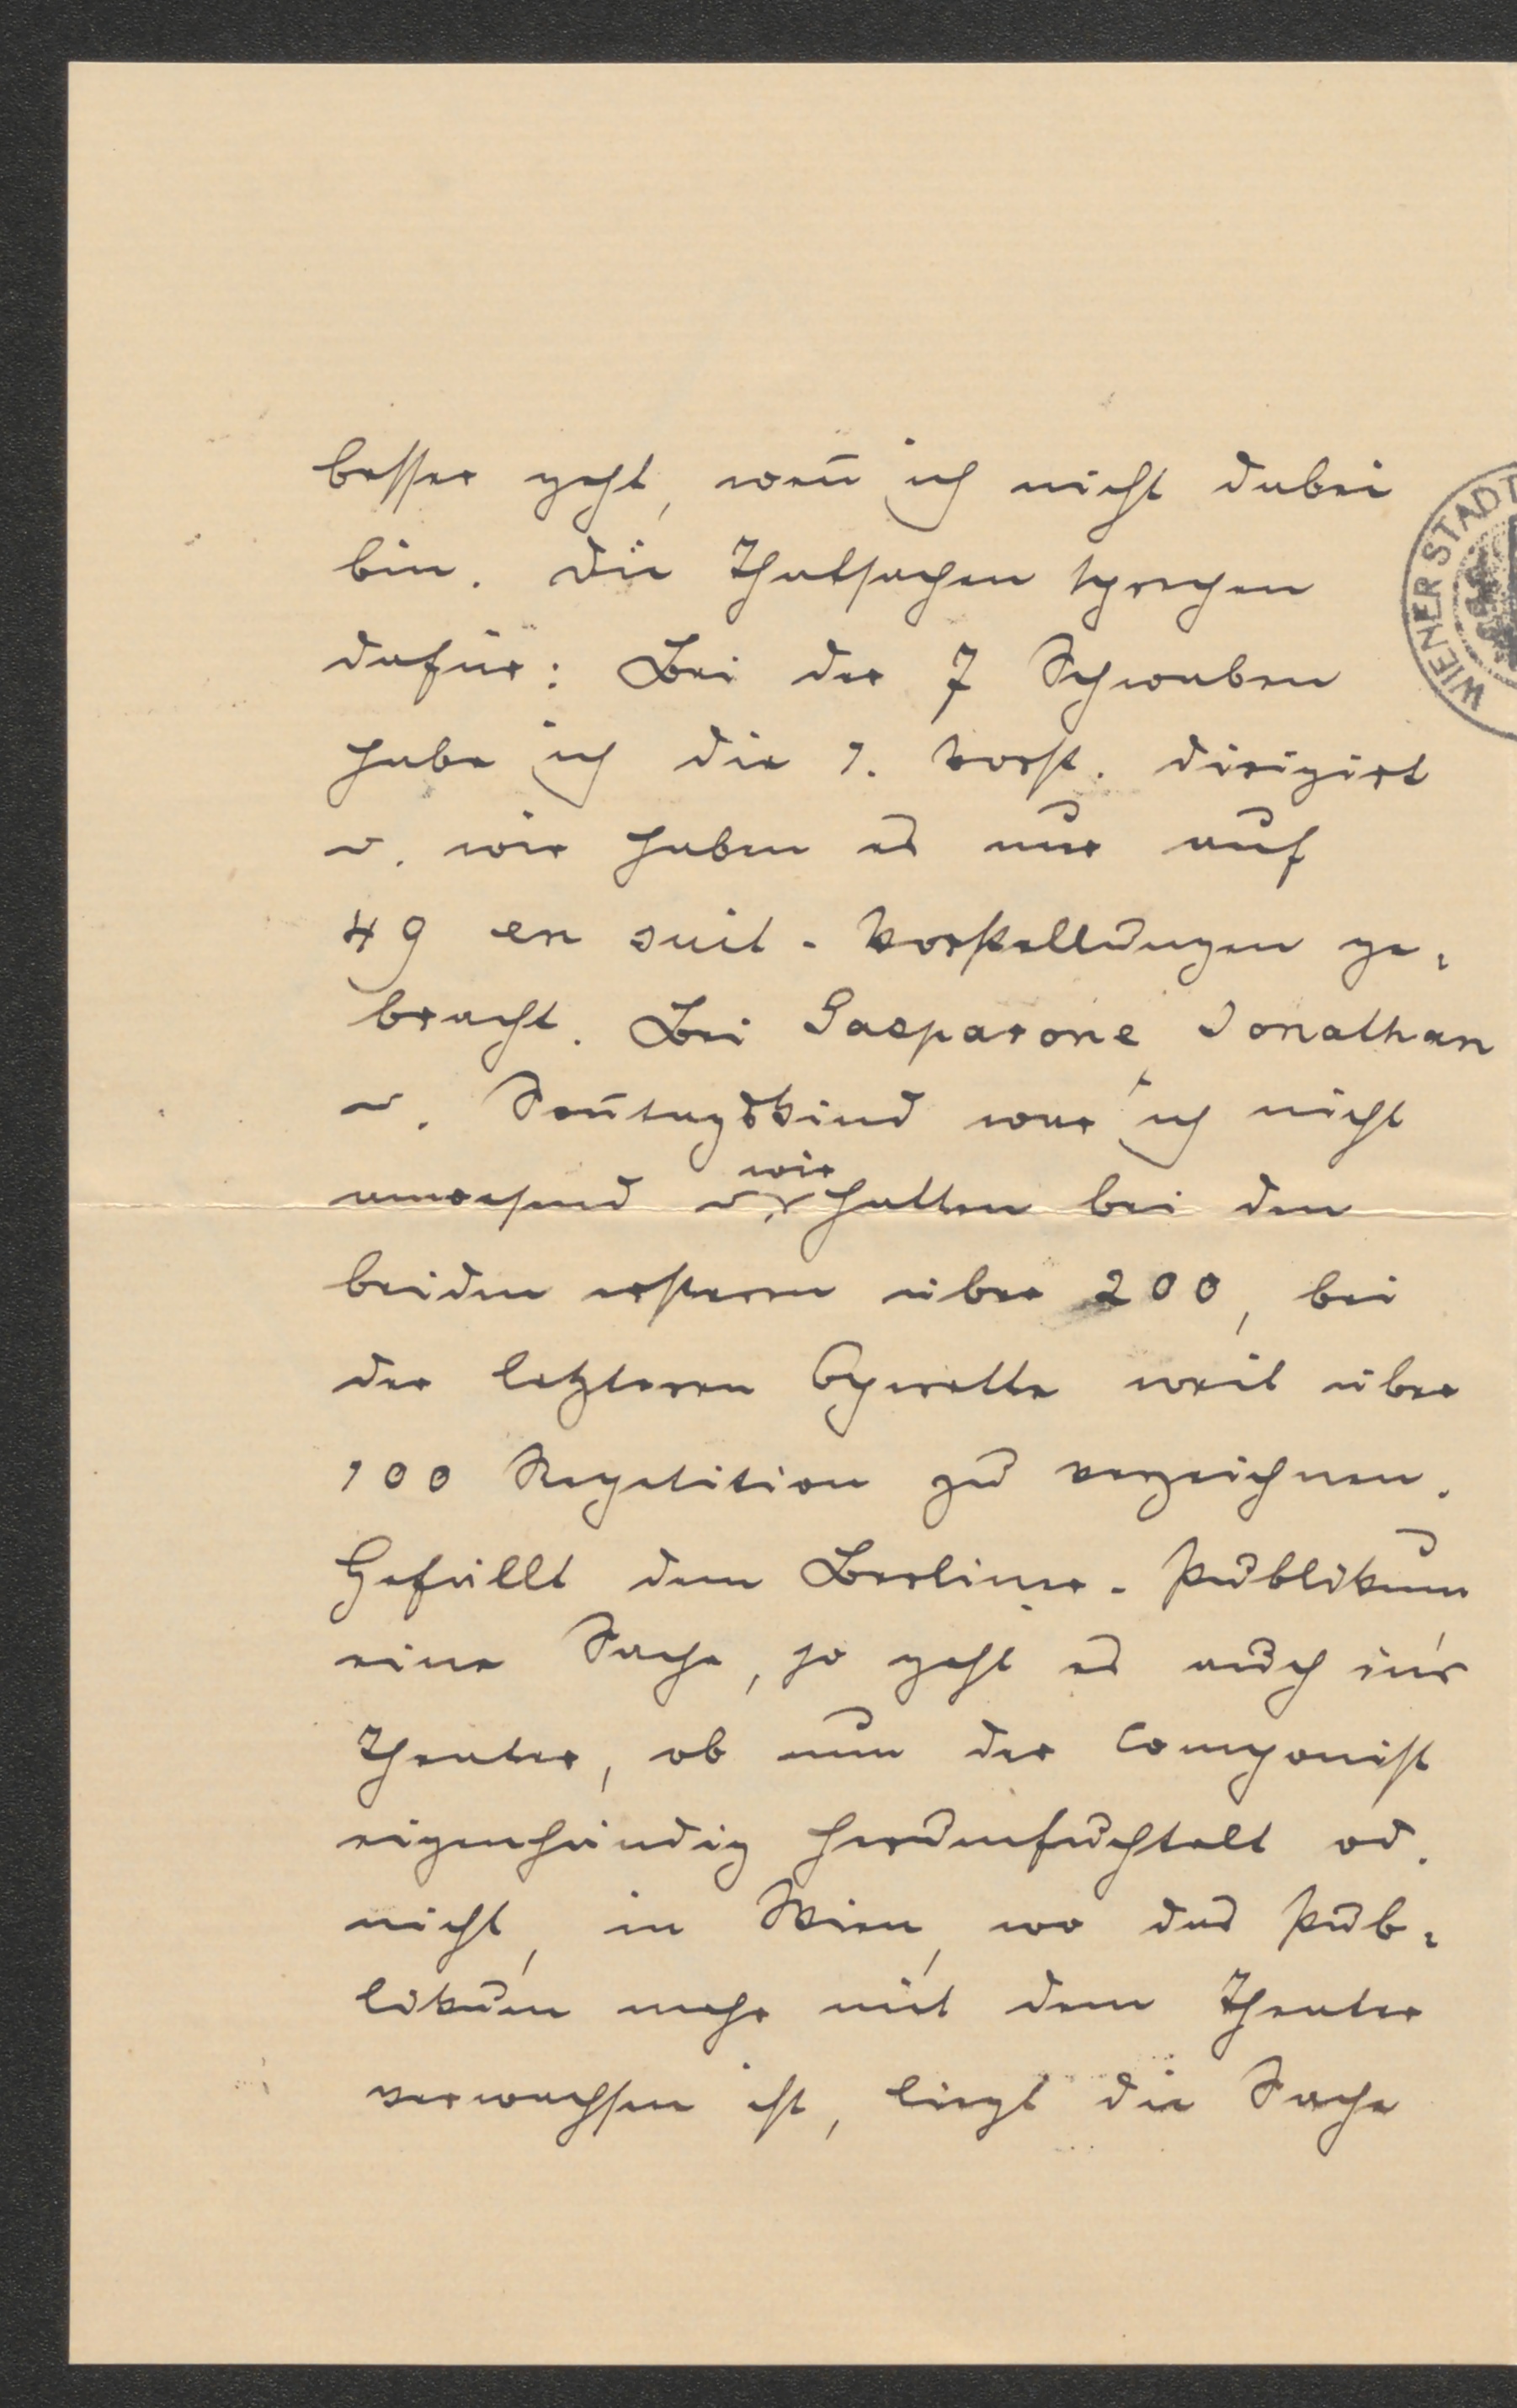 besser geht, wen̄ ich nicht dabei
bin. Die Thatsachen sprechen
dafür: Bei der 7 Schwaben
habe ich die 1. Vorst. dirigirt
u. wir haben es nur auf
49 en suit - Vorstellungen ge-
bracht. Bei Gasparone, Jonathan
u. Son̄tagskind war ich nicht
wir
anwesend u. hatten bei den
beiden ersteren über 200, bei
der letzteren Operette weit über
100 Repetition zu verzeichnen.
Gefällt dem Berliner-Publikum
eine Sache, so geht es auch in's
Theater, ob nun der Componist
eigenhändig herumfuchtelt od.
nicht, in Wien, wo das Pub-
likum mehr mit dem Theater
verwachsen ist, liegt die Sache
WIENER STADT